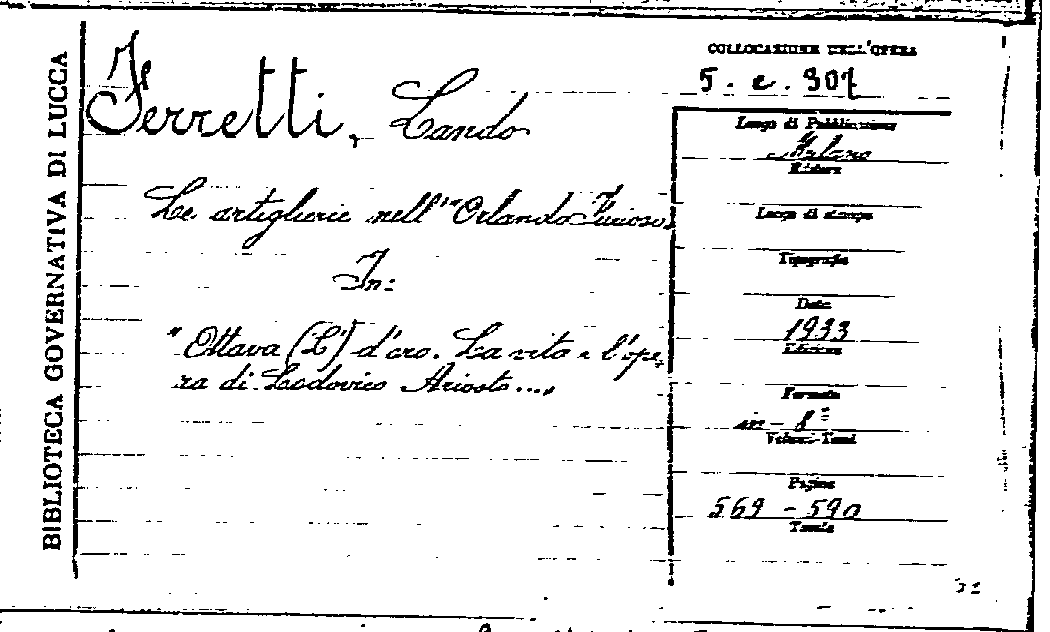 BIBLIOTECA GOVERNATIVA DI LUCCA
Ferretti, Lando
Le artiglierie nell'"Orlando Furioso"
In:
"Ottava (L') d'oro. La vita e l'ope-
ra di Lodovico Ariosto...,
COLLOCAZIONE DELL'OPERA
5. e. 307
Luogo di Pubblicazione
Milano
Editore
Luogo di stampa
Tipografia
Data
1933
Edizione
Formato
in-8°
Volumi-Tomi
Pagine
569 - 590
Tavole